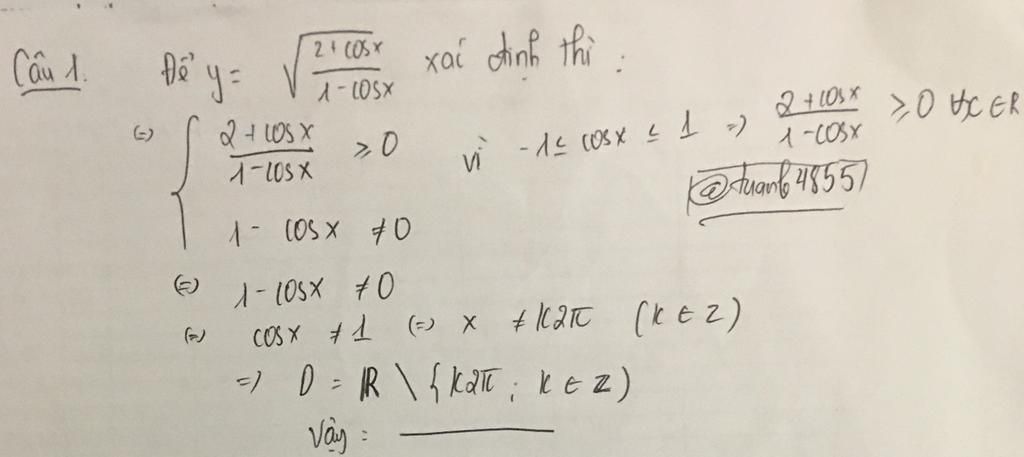 Câu 1. Để y = √((2+cosx)/(1-cosx)) xác định thì :
(=) { (2+cosx)/(1-cosx) ≥ 0 vì -1 ≤ cosx ≤ 1 => (2+cosx)/(1-cosx) ≥ 0 ∀x ∈ R
@tuanb4855
1 - cosx ≠ 0
(=) 1-cosx ≠ 0
(=) cosx ≠ 1 (=) x ≠ k2π (k ∈ Z)
=> D = R \ {k2π ; k ∈ Z)
Vậy :